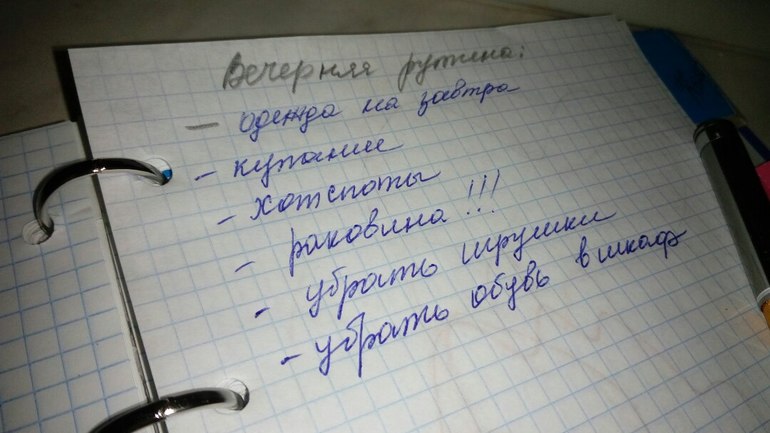 Вечерняя рутина:
- одежда на завтра
- купание
- хотспоты
- раковина !!!
- убрать игрушки
- убрать обувь в шкаф